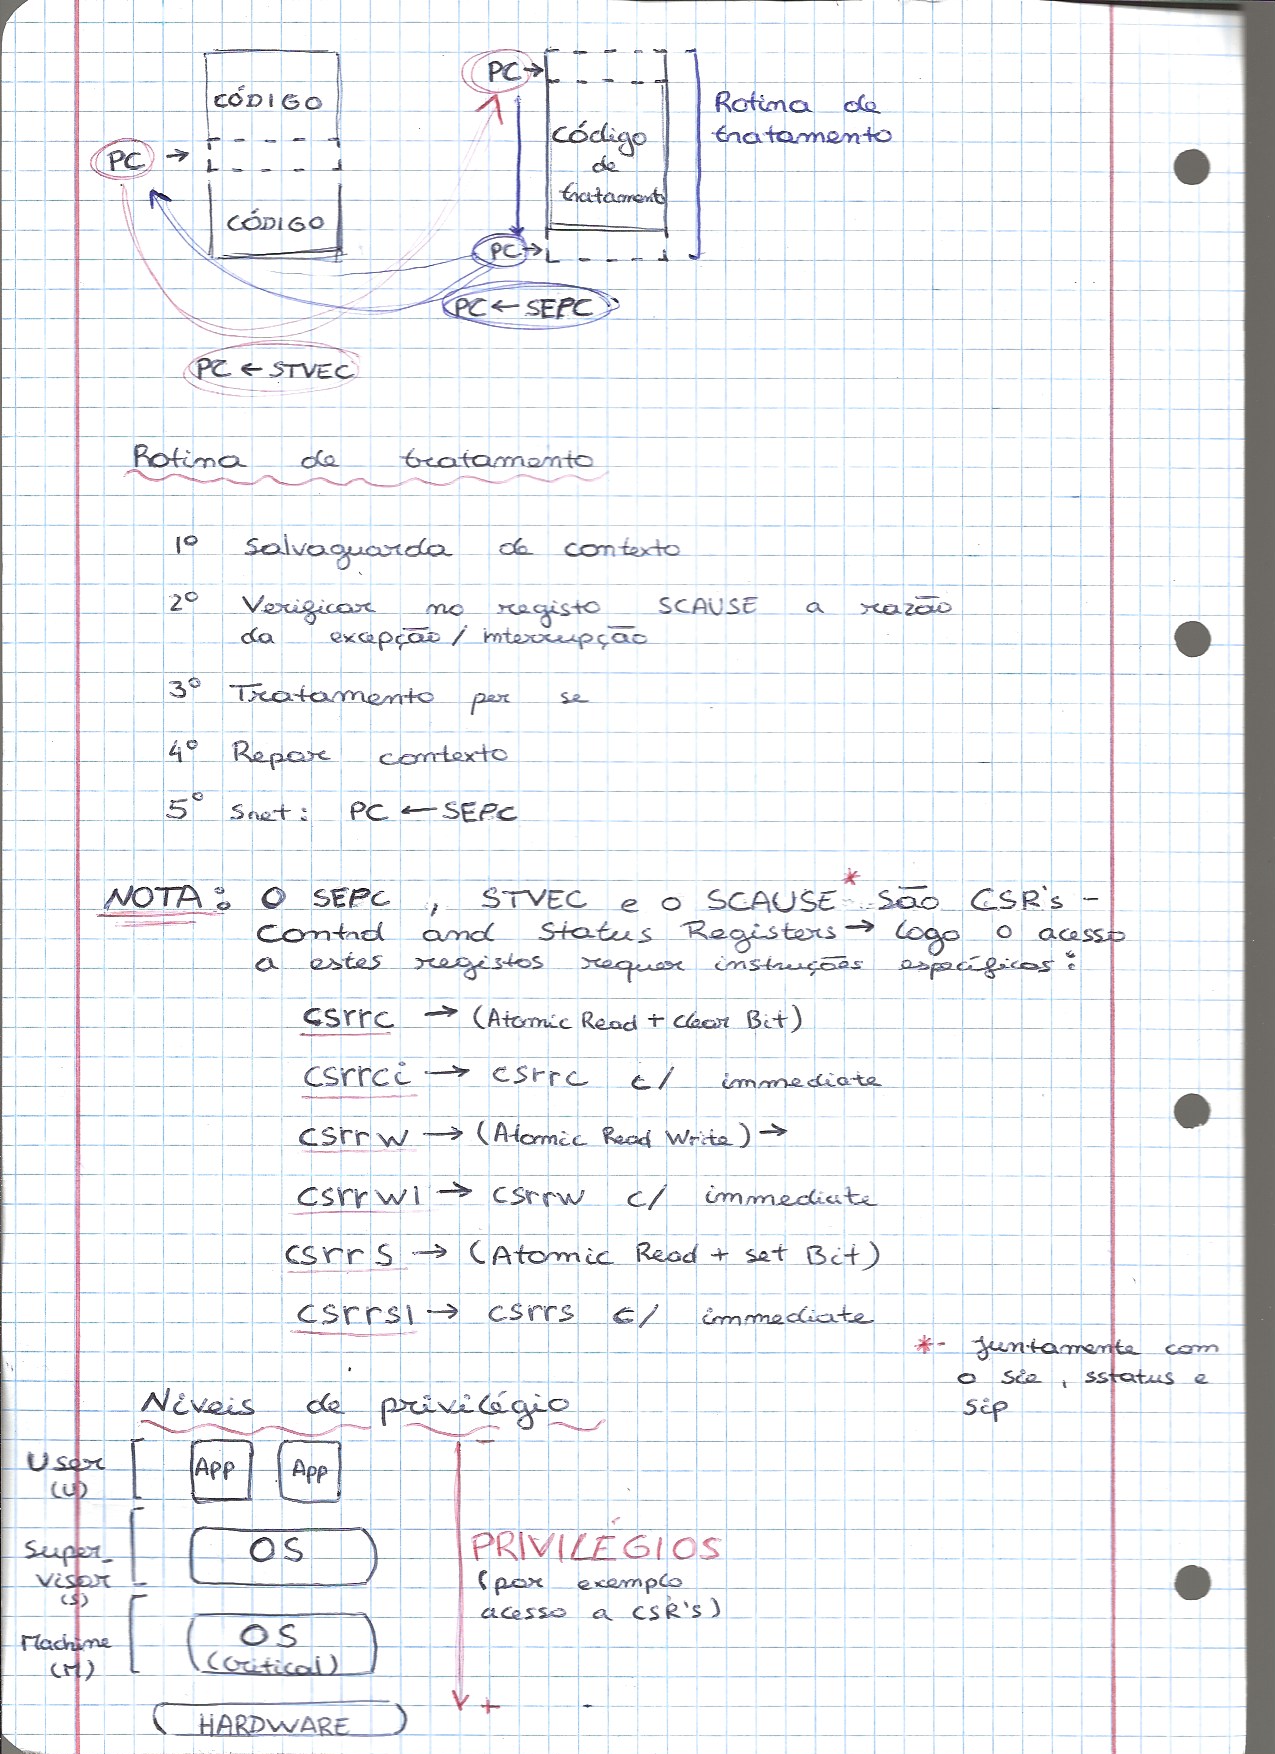 CÓDIGO
PC →
CÓDIGO
PC →
Código
de
tratamento
PC →
Rotina de
tratamento
PC ← SEPC
PC ← STVEC
Rotina de tratamento
1º Salvaguarda de contexto
2º Verificar no registo SCAUSE a razão
da excepção / interrupção
3º Tratamento per se
4º Repor contexto
5º Sret: PC ← SEPC
NOTA: O SEPC, STVEC e o SCAUSE* são CSR's -
Control and Status Registers → logo o acesso
a estes registos requer instruções específicos:
csrrc → (Atomic Read + clear Bit)
csrrci → csrrc c/ immediate
csrrw → (Atomic Read Write) →
csrrwi → csrrw c/ immediate
csrrs → (Atomic Read + set Bit)
csrrsi → csrrs c/ immediate
*- juntamente com
o sie, sstatus e
sip
Níveis de privilégio
User
(U)
App App
Super-
visor
(S)
OS
Machine
(M)
OS
(Critical)
HARDWARE
-
PRIVILÉGIOS
(por exemplo
acesso a CSR's)
+